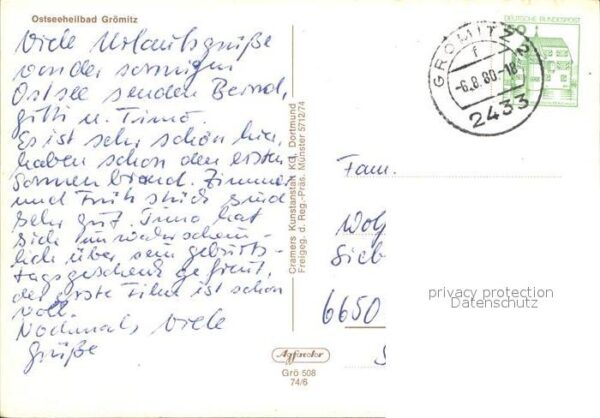 Ostseeheilbad Grömitz
Viele Urlaubsgrüße
von der sonnigen
Ostsee senden Bernd,
Gitti u. Timo.
Es ist sehr schön hier,
haben schon den ersten
Sonnenbrand. Zimmer
und Frühstück sind
sehr gut. Timo hat
sich wahrschein-
lich über sein Geburts-
tagsgeschenk gefreut,
der erste Film ist schon
voll.
Nochmals, viele
Grüße
Cramers Kunstanstalt KG, Dortmund
Freigeg. d. Reg.-Präs. Münster 5712/74
Agfacolor
Grö 508
74/6
DEUTSCHE BUNDESPOST
50
GRÖMITZ 2
f
-6.8.80-18
2433
Fam.
Wolf
Sieb
6650
privacy protection
Datenschutz